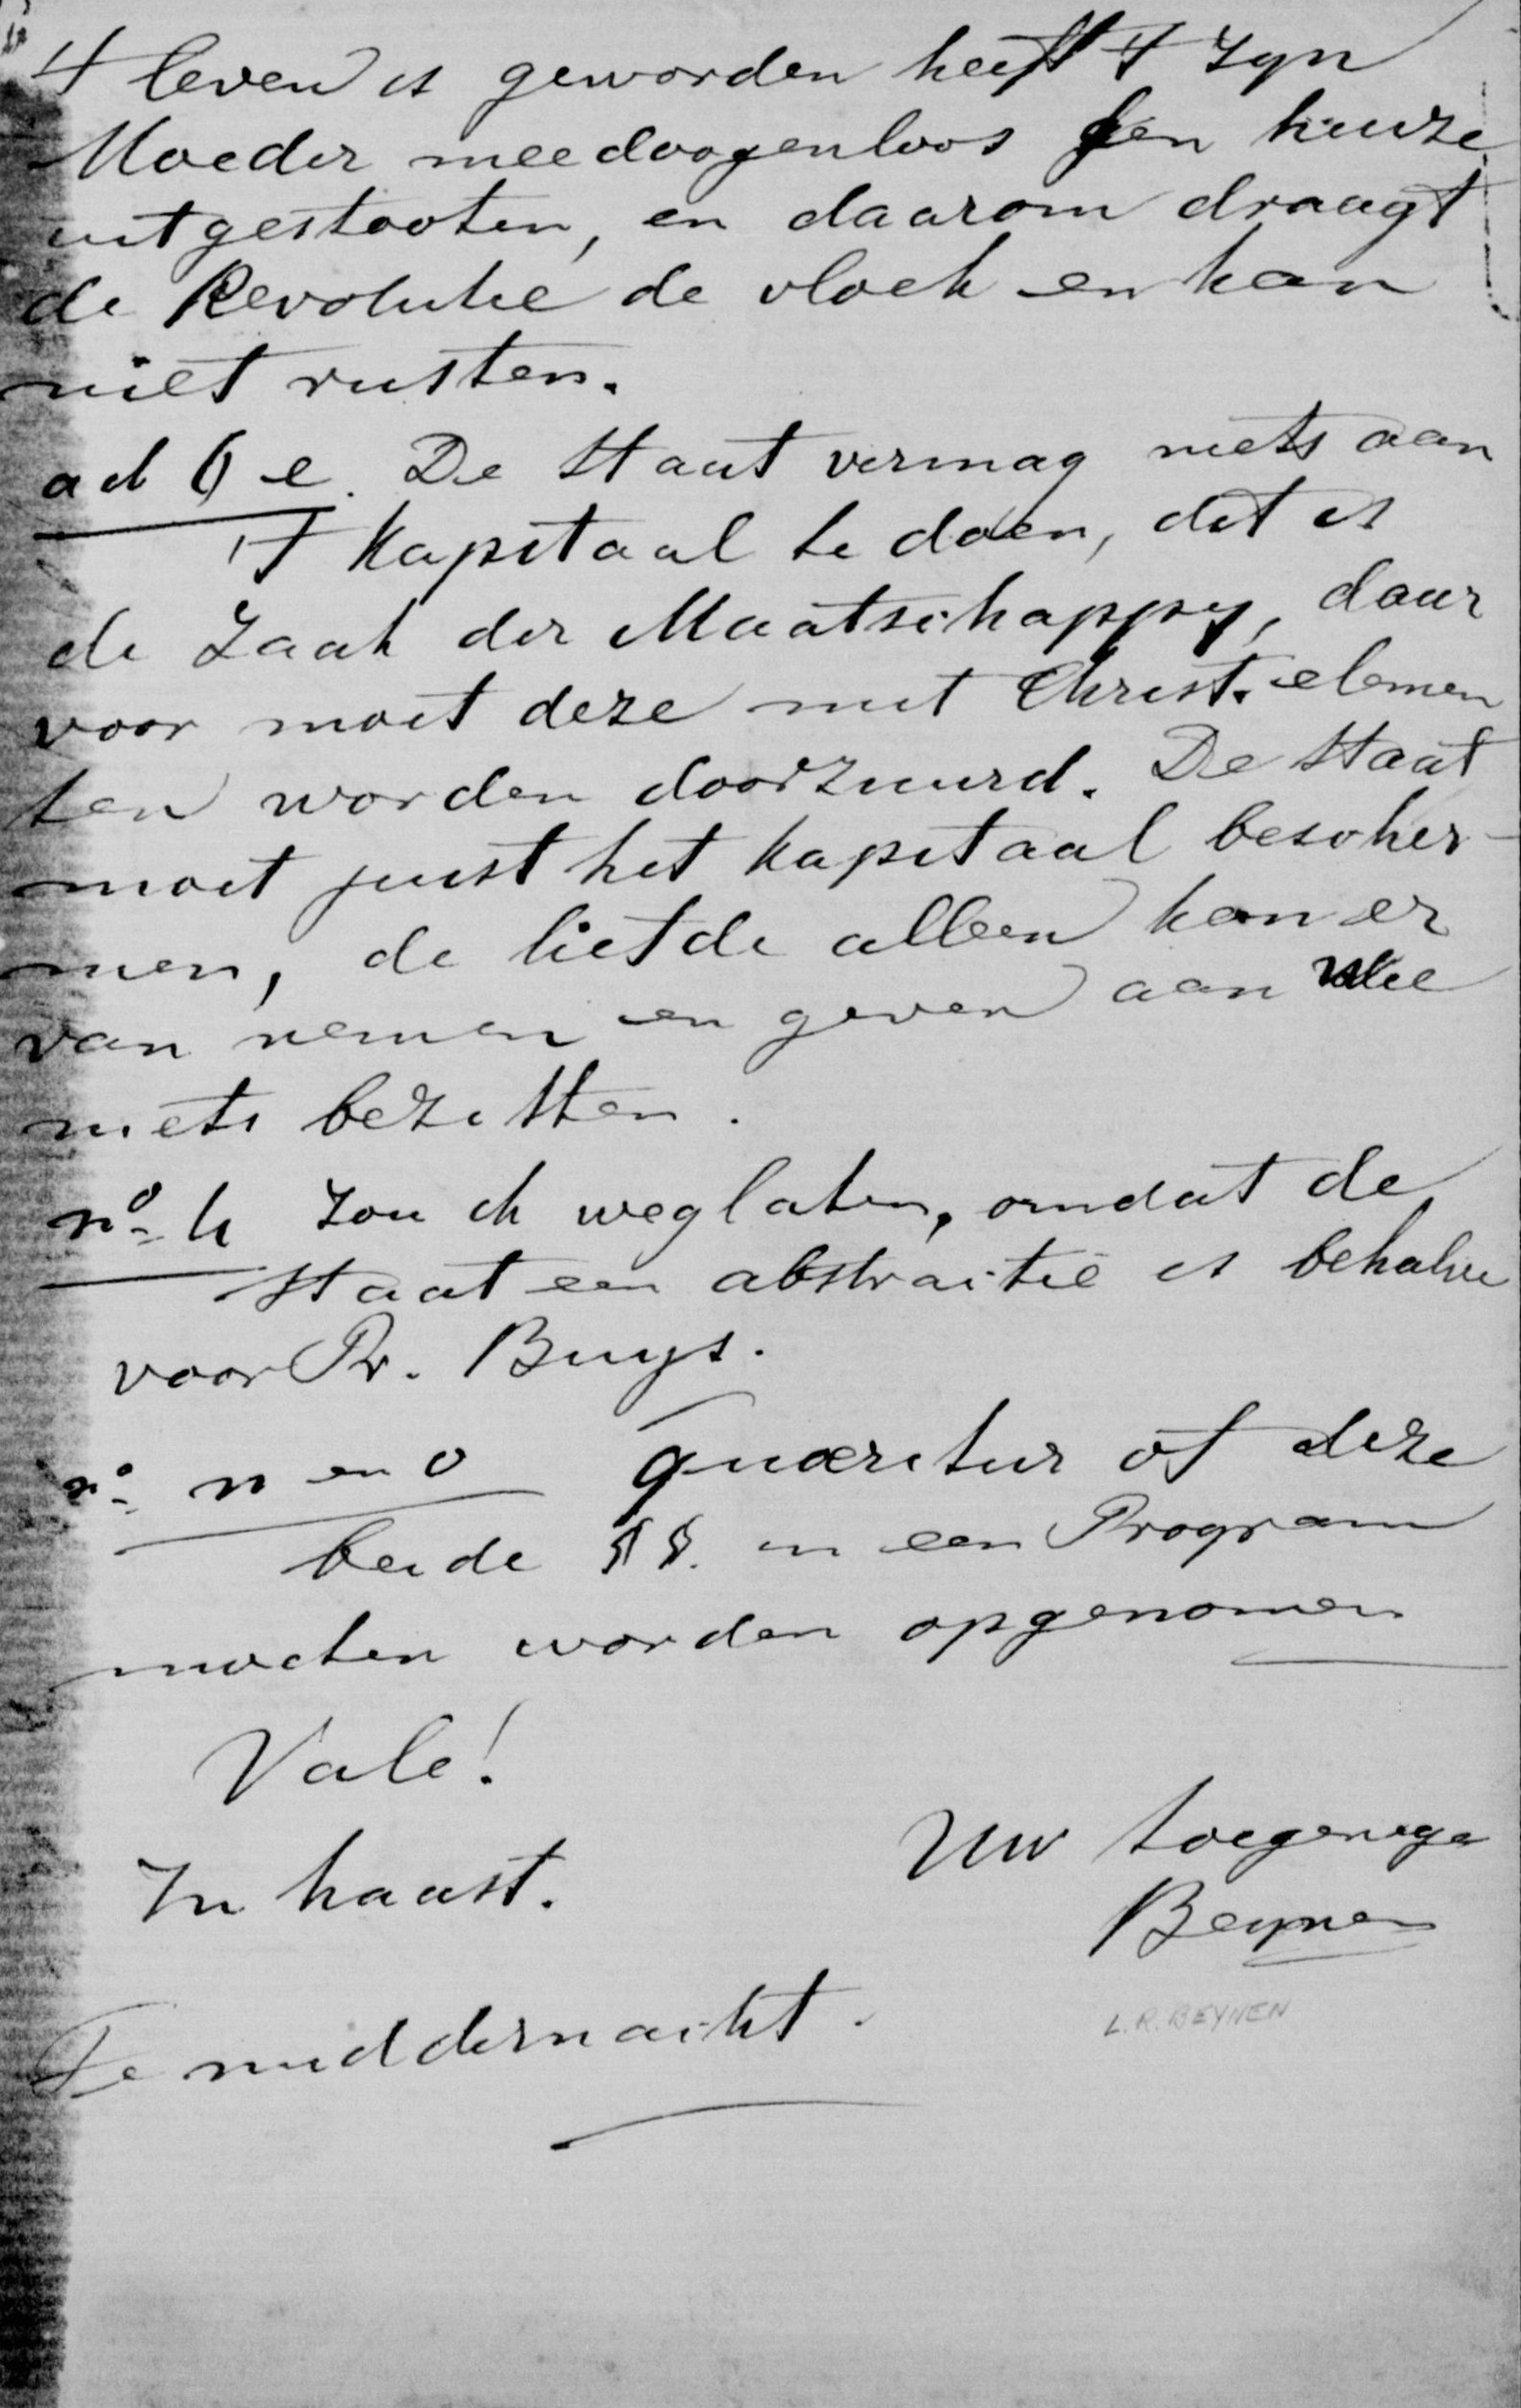 't leven is geworden heeft 't zyn
Moeder meedoogenloos ten huize
uitgestooten, en daarom draagt
de Revolutie de vloek en kan
niet rusten.
ad 6 e. De Staat vermag niets aan
't Kapitaal te doen, dit is
de zaak der Maatschappy, daar
voor moet deze met Christ. elemen
ten worden doorzuurd. De Staat
moet juist het kapitaal bescher-
men, de liefde alleen kan er
van nemen en geven aan wie
niets bezitten.
no h zou ik weglaten, omdat de
Staat een abstractie is behalve
voor Pr. Buys.
no n en o quaeritur of deze
beide §§. in een Program
moeten worden opgenomen
Vale!
Uw toegenegen
In haast.
Beynen
L.R. BEYNEN
Te middernacht.